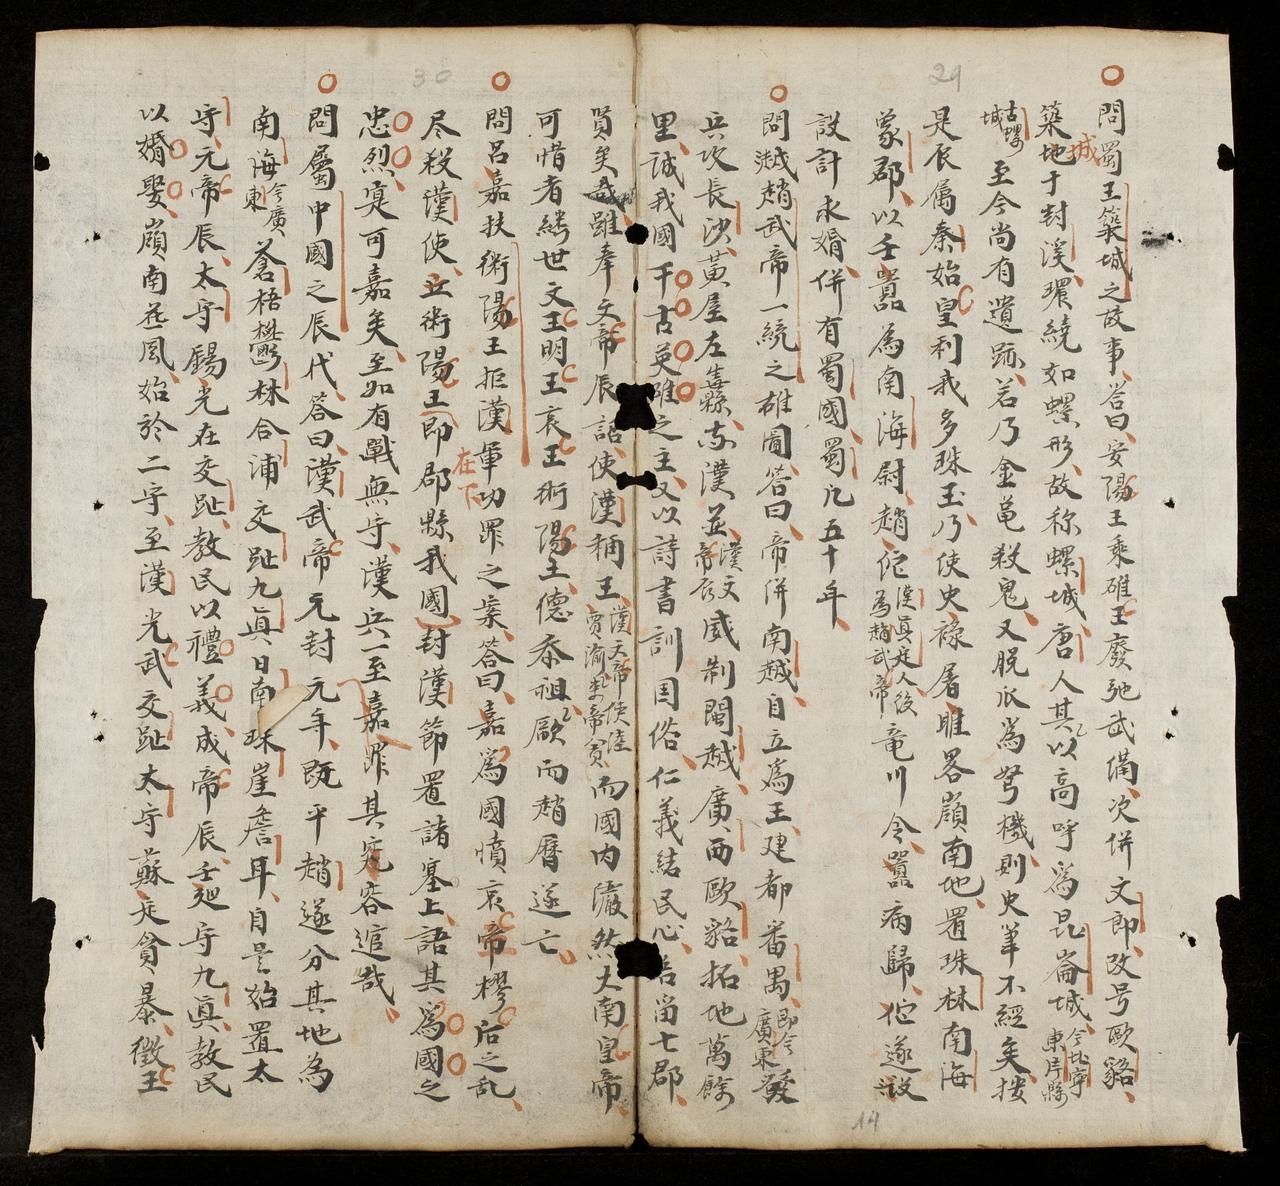 29
問蜀王築城之故事答曰安陽王乘碓王廢弛武俻次併文郎改号歐貉
築城地于封溪環繞如螺形故称螺城唐人其以高呼為昆崙城今北寧東岸縣
古螺城至今尚有遺跡若乃金龟殺鬼又脱爪為弩機則史筆不經矣接
是辰属秦始皇利我多珠玉乃使史禄屠睢畧嶺南地置珠林南海
象郡以壬嚣為南海尉趙佗漢真定人後為趙武帝竜川令嚣病歸佗遂
設計求婚併有蜀國蜀凡五十年
問越趙武帝一統之雄圖答曰帝併南越自立為王建都番禺即今廣東發
兵次長沙黄屋左纛縣与漢並漢文帝辰威制閩越廣西歐貉拓地萬餘
里誠我國千古英雄之主又以詩書訓国俗仁義結民心書留七郡
賢矣哉雖奉文帝辰詔使漢稱王而國内濂然大南皇帝
可惜者継世文王明王哀王術陽王德忝祖厥而趙曆遂亡
14
30
問吕嘉扶術陽王拒漢軍功罪之案答曰嘉為國憤哀帝樛后之乱
尽殺漢使立術陽王即郡縣我國封漢節置諸塞上語其為國之
在下
忠烈寔可嘉矣至如有戰無守漢兵一至嘉罪其究容逭哉
問屬中國之辰代答曰漢武帝元封元年既平趙遂分其地為
南海今廣東蒼梧欝林合浦交趾九真日南珠崖儋耳自是始置太
守元帝辰太守錫光在交趾教民以禮義成帝辰壬延守九真教民
以婚娶嶺南華風始於二守至漢光武交趾太守蘇定貪暴徵王